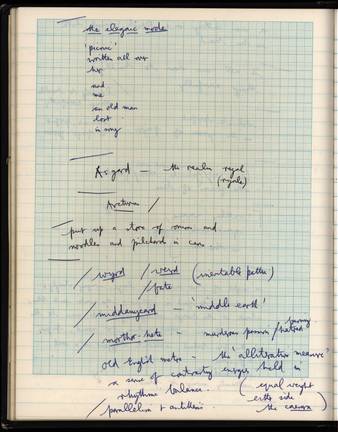 the elegaic mode
'picnic'
written all over
her
and
me
an old man
lost
in my
Asgard — the realm regal
(royals)
Arcturus /
put up a store of onion and
noodles and pilchard in case
/ wyrd / weird (inevitable pattern)
/ fate
/ middangeard — 'middle earth'
/ morthor-hete — murderous passion / hatred
Old English metre — the alliterative measure
a sense of contrasting energies held in
rhythmic balance.
(equal weight
either side
the caesura)
/ parallelism & antithesis